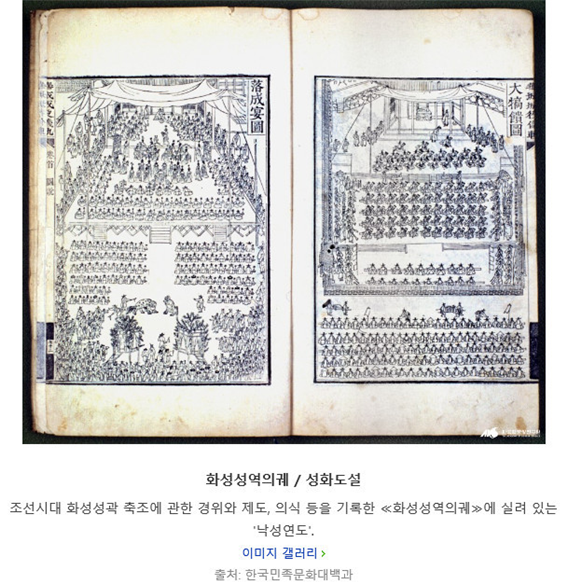 落成宴圖
大犒饋圖
화성성역의궤 / 성화도설
조선시대 화성성곽 축조에 관한 경위와 제도, 의식 등을 기록한 ≪화성성역의궤≫에 실려 있는
'낙성연도'.
이미지 갤러리 >
출처: 한국민족문화대백과